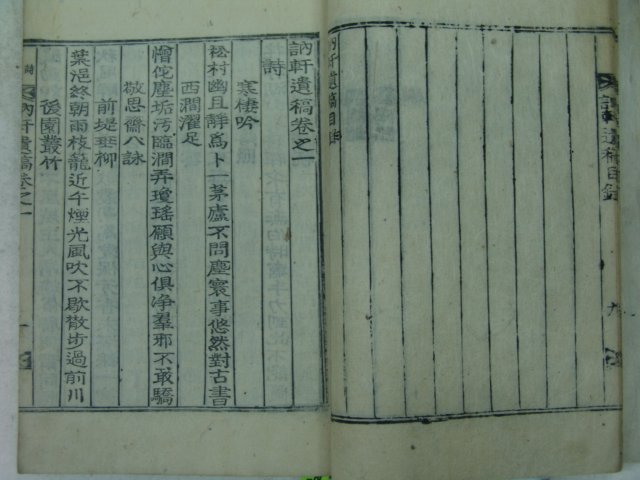 訥軒遺稿目録
訥軒遺稿目录
訥軒遺稿卷之一
詩
寒棲吟
松村幽且靜爲卜一茅廬不問塵寰事悠然對古書
西澗濯足
憎佗塵垢汚臨澗弄瓊瑤願與心俱净羣邪不敢驕
敬思齋八詠
前堤垂柳
葉浥終朝雨枝籠近午煙光風吹不歇散步過前川
後園叢竹
詩
訥軒遺稿卷之一
一